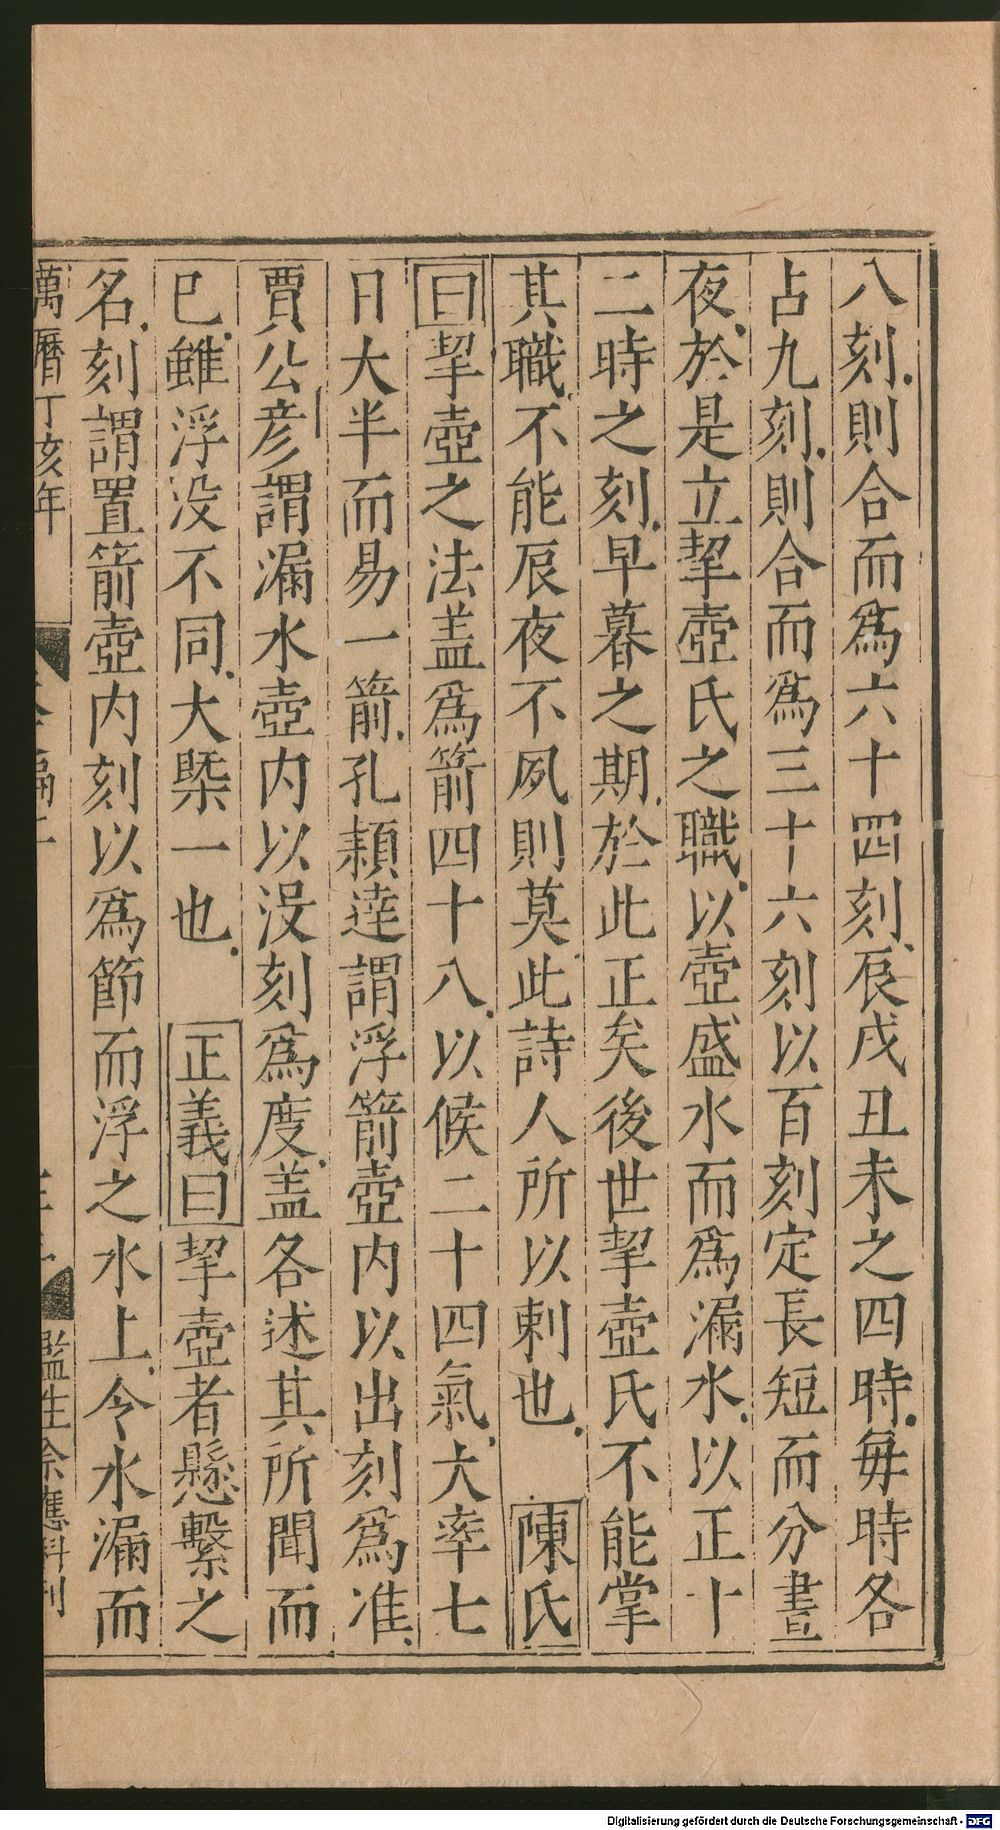 八刻則合而為六十四刻辰戌丑未之四時每時各
占九刻則合而為三十六刻以百刻定長短而分晝
夜於是立挈壺氏之職以壺盛水而為漏水以正十
二時之刻早暮之期於此正矣後世挈壺氏不能掌
其職不能辰夜不夙則莫此詩人所以刺也 陳氏
曰挈壺之法盖為箭四十八以候二十四氣大率七
日大半而易一箭孔穎逹謂浮箭壺内以出刻為准
賈公彦謂漏水壺内以没刻為度盖各述其所聞而
已雖浮没不同大槩一也 正義曰挈壺者懸繫之
名刻謂置箭壺内刻以為節而浮之水上令水漏而
萬曆丁亥年
監生余應科刊
Digitalisierung gefördert durch die Deutsche Forschungsgemeinschaft - DFG